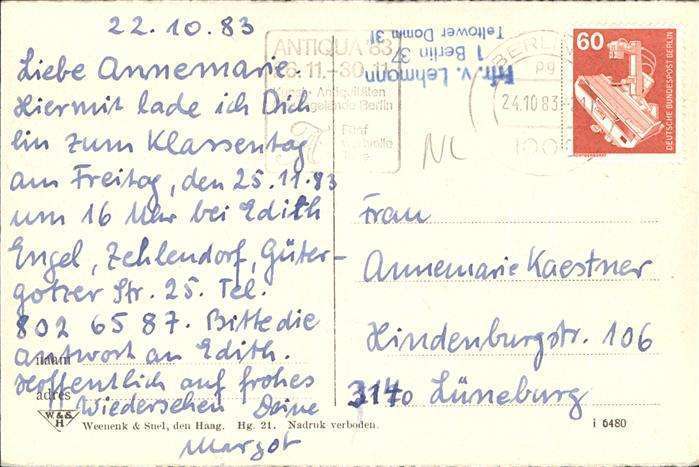 22.10.83
Liebe Annemarie.
Hiermit lade ich Dich
ein zum Klassentag
am Freitag, den 25.11.83
um 16 Uhr bei Edith
Engel, Zehlendorf, Güter-
gotzer Str. 25. Tel.
802 65 87. Bitte die
Antwort an Edith.
Hoffentlich auf frohes
Wiedersehen Deine
Margot
naam
adres
W&S
H
Weenenk & Snel, den Haag. Hg. 21. Nadruk verboden.
i 6480
ANTIQUA '83
Antiquitäten
Berlin
Fünf
v. Lehmann
1 Berlin 37
Teltower Damm
BERLIN
24.10.83
1000
60
DEUTSCHE BUNDESPOST BERLIN
NL
Frau
Annemarie Kaestner
Hindenburgstr. 106
3140 Lüneburg